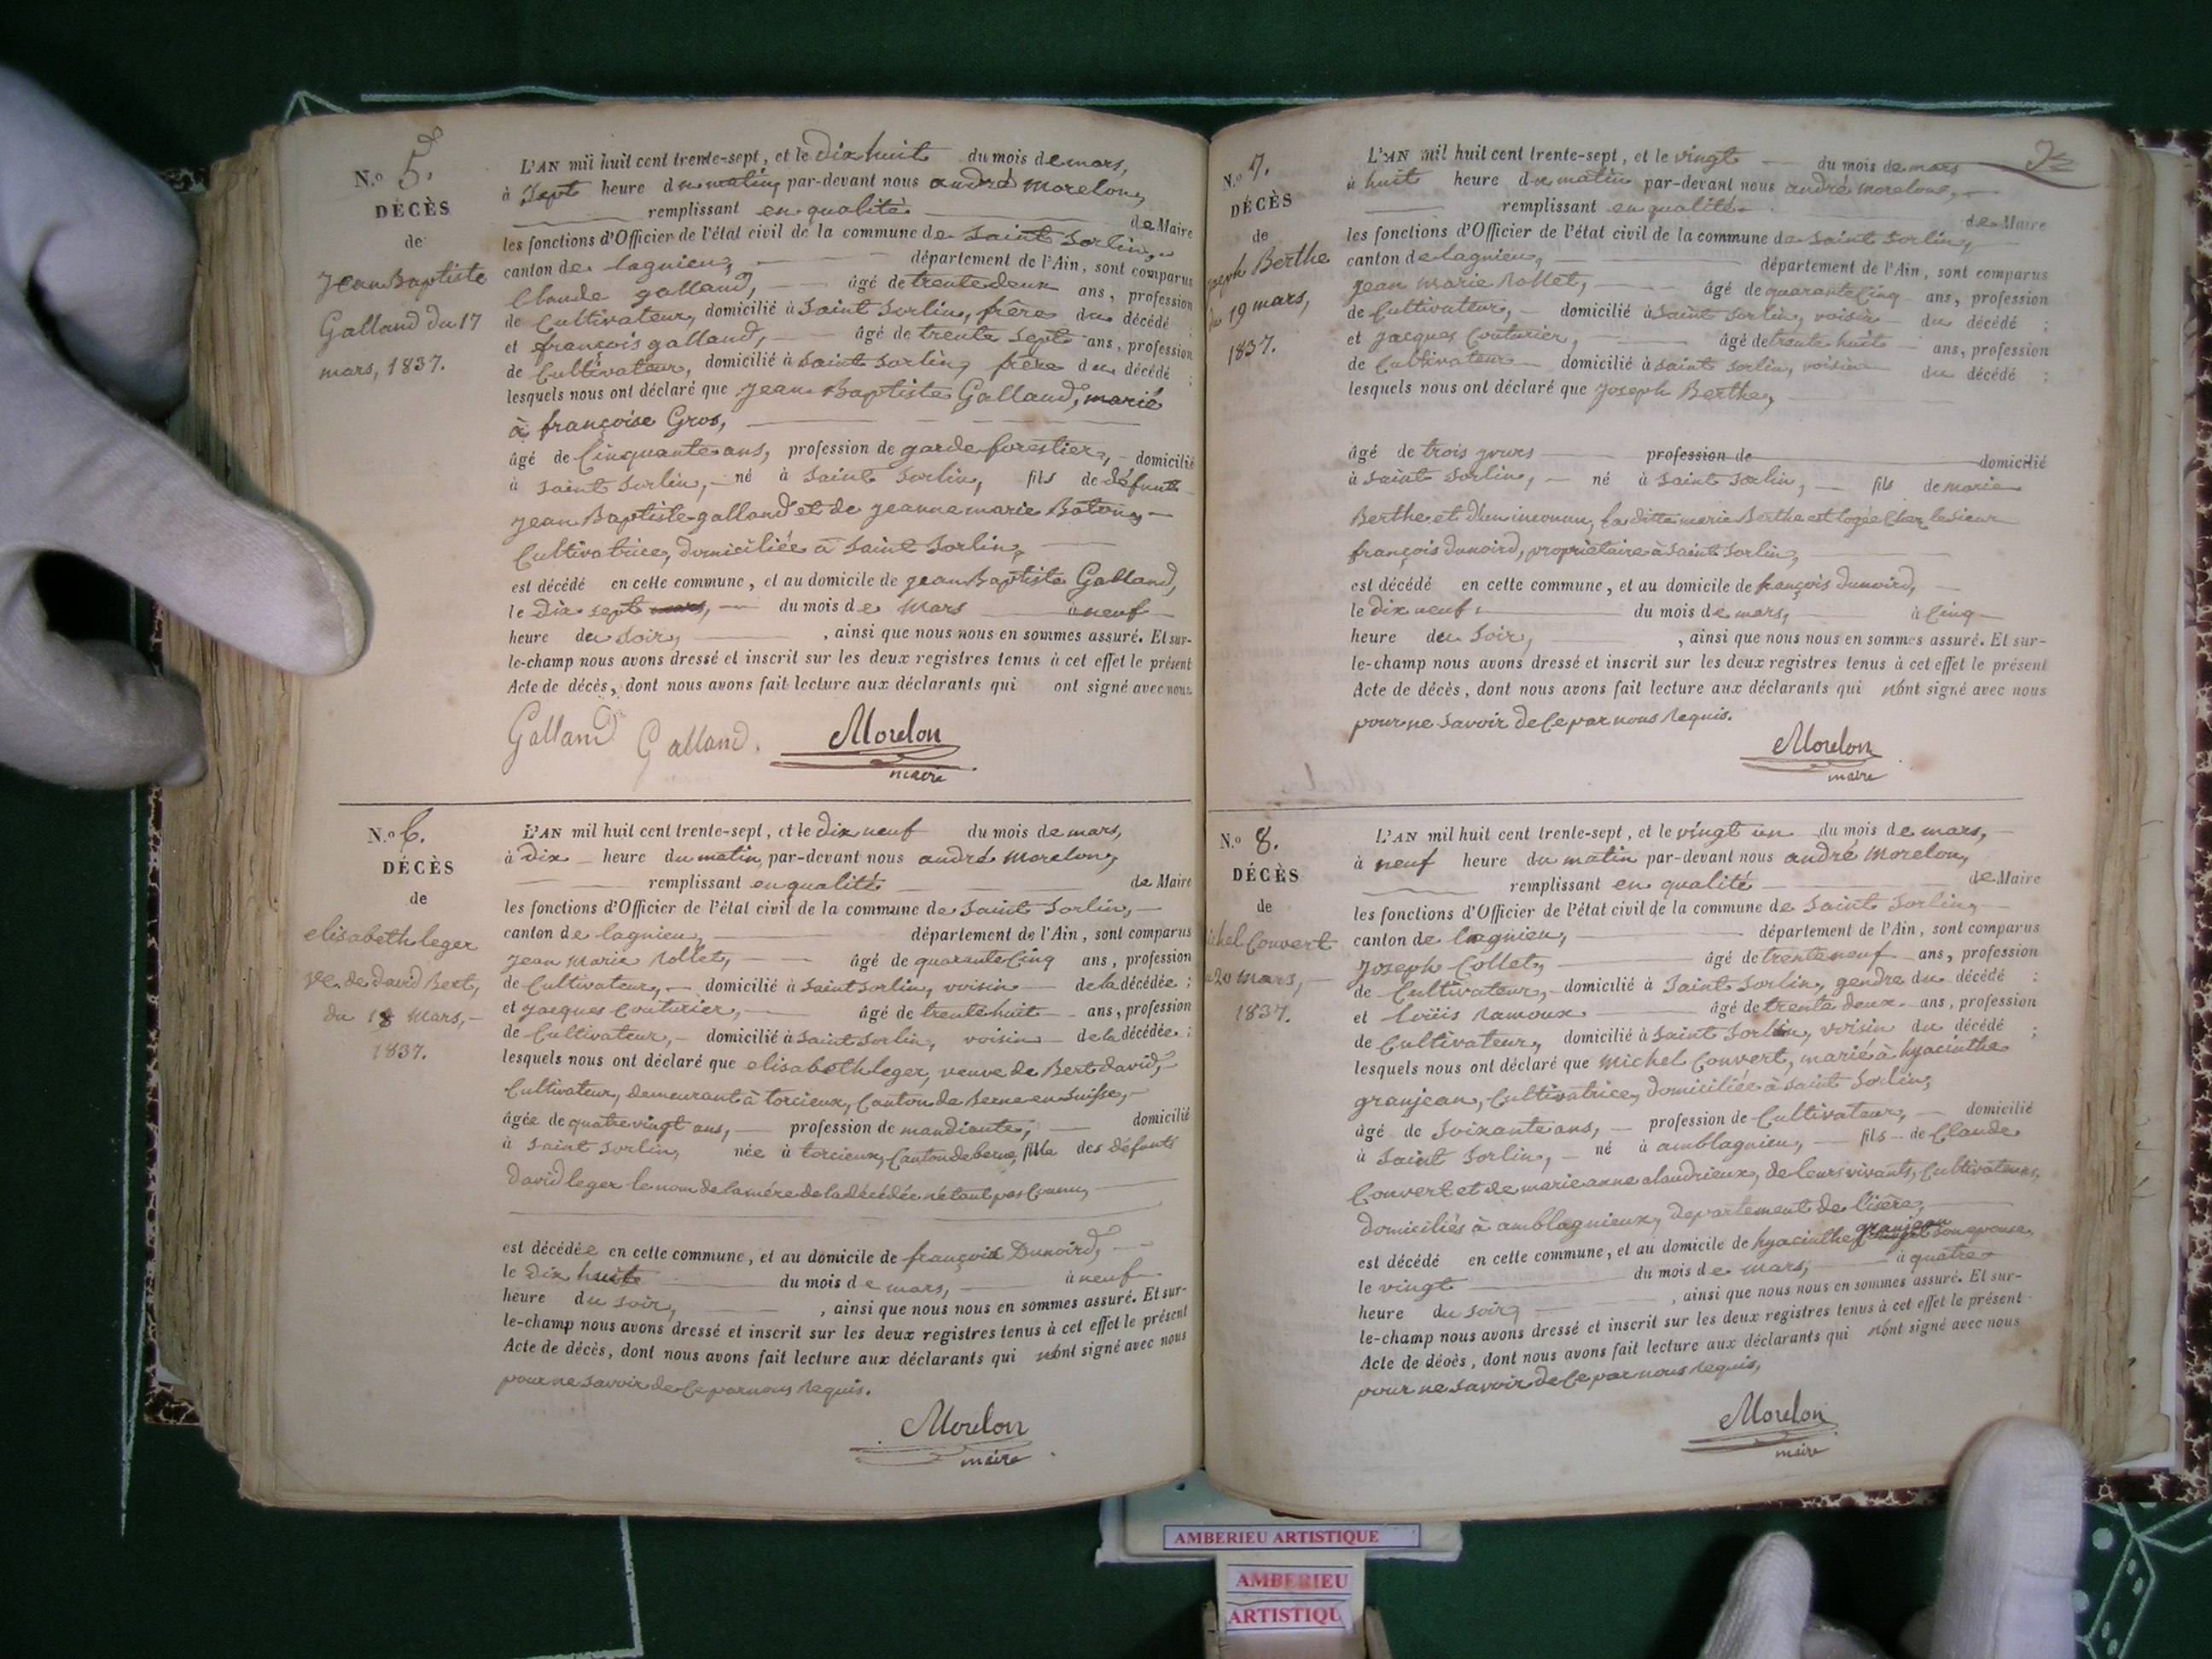 N.o 5.
DÉCÈS
de
Jean Baptiste
Galland du 17
mars, 1837.
L'AN mil huit cent trente-sept, et le dix huit du mois de mars,
à sept heure du matin, par-devant nous andré morelon,
remplissant en qualité de Maire
les fonctions d'Officier de l'état civil de la commune de saint sorlin,
canton de lagnieu, département de l'Ain, sont comparus
Claude galland, âgé de trente deux ans, profession
de Cultivateur, domicilié à saint sorlin, frère du décédé ;
et françois galland, âgé de trente sept ans, profession
de Cultivateur, domicilié à saint sorlin, frère du décédé ;
lesquels nous ont déclaré que jean Baptiste Galland, marié
à françoise Gros,
âgé de Cinquante ans, profession de garde forestier, domicilié
à saint sorlin, né à saint sorlin, fils de défunt
jean Baptiste galland et de jeanne marie
Cultivatrice, domiciliée à saint sorlin,
est décédé en cette commune, et au domicile de jean Baptiste Galland,
le dix sept mars, du mois de mars à neuf
heure du soir, , ainsi que nous nous en sommes assuré. Et sur-
le-champ nous avons dressé et inscrit sur les deux registres tenus à cet effet le présent
Acte de décès, dont nous avons fait lecture aux déclarants qui ont signé avec nous
Galland Galland. Morelon
maire
N.o 6.
DÉCÈS
de
elisabeth leger
ve. de david Bert,
du 18 mars,
1837.
L'AN mil huit cent trente-sept, et le dix neuf du mois de mars,
à dix heure du matin, par-devant nous andré morelon,
remplissant en qualité de Maire
les fonctions d'Officier de l'état civil de la commune de saint sorlin,
canton de lagnieu, département de l'Ain, sont comparus
jean marie rollet, âgé de quarante Cinq ans, profession
de Cultivateur, domicilié à saint sorlin, voisin de la décédée ;
et jacques Couturier, âgé de trente huit ans, profession
de Cultivateur, domicilié à saint sorlin, voisin de la décédée ;
lesquels nous ont déclaré que elisabeth leger, veuve de Bert david,
Cultivateur, demeurant à torcieux, Canton de Berne en Suisse,
âgée de quatre vingt ans, profession de mandiante, domicilié
à saint sorlin, née à torcieux, Canton de berne, fille des défunts
david leger le nom de la mère de la décédée n'étant pas Connu,
est décédée en cette commune, et au domicile de françois Dunoird,
le dix huit du mois de mars, à neuf
heure du soir, , ainsi que nous nous en sommes assuré. Et sur-
le-champ nous avons dressé et inscrit sur les deux registres tenus à cet effet le présent
Acte de décès, dont nous avons fait lecture aux déclarants qui n'ont signé avec nous
pour ne savoir de Ce par nous requis.
Morelon
maire
N.o 7.
DÉCÈS
de
Joseph Berthe
du 19 mars,
1837.
L'AN mil huit cent trente-sept, et le vingt du mois de mars
à huit heure du matin par-devant nous andré morelon,
remplissant en qualité de Maire
les fonctions d'Officier de l'état civil de la commune de saint sorlin,
canton de lagnieu, département de l'Ain, sont comparus
jean marie rollet, âgé de quarante Cinq ans, profession
de Cultivateur, domicilié à saint sorlin, voisin du décédé ;
et jacques Couturier, âgé de trente huit ans, profession
de Cultivateur domicilié à saint sorlin, voisin du décédé ;
lesquels nous ont déclaré que joseph Berthe,
âgé de trois jours profession de domicilié
à saint sorlin, né à saint sorlin, fils de marie
Berthe et d'un inconnu, la ditte marie Berthe est logée Chez le sieur
françois dunoird, propriétaire à saint sorlin,
est décédé en cette commune, et au domicile de françois dunoird,
le dix neuf du mois de mars, à Cinq
heure du soir, , ainsi que nous nous en sommes assuré. Et sur-
le-champ nous avons dressé et inscrit sur les deux registres tenus à cet effet le présent
Acte de décès, dont nous avons fait lecture aux déclarants qui n'ont signé avec nous
pour ne savoir de Ce par nous requis.
Morelon
maire
N.o 8.
DÉCÈS
de
ichel Convert
20 mars,
1837.
L'AN mil huit cent trente-sept, et le vingt un du mois de mars,
à neuf heure du matin par-devant nous andré morelon,
remplissant en qualité de Maire
les fonctions d'Officier de l'état civil de la commune de saint sorlin,
canton de lagnieu, département de l'Ain, sont comparus
joseph Collet, âgé de trente neuf ans, profession
de Cultivateur, domicilié à saint sorlin, gendre du décédé ;
et loüis ramoux âgé de trente deux ans, profession
de Cultivateur, domicilié à saint sorlin, voisin du décédé ;
lesquels nous ont déclaré que michel Convert, marié à hyacinthe
granjean, Cultivatrice, domiciliée à saint sorlin,
âgé de soixante ans, profession de Cultivateur, domicilié
à saint sorlin, né à amblagnieu, fils de Claude
Convert et de marie anne alandrieux, de leurs vivants, Cultivateurs,
domiciliés à amblagnieux, département de l'isère,
est décédé en cette commune, et au domicile de hyacinthe granjean son epouse,
le vingt du mois de mars, à quatre
heure du soir, , ainsi que nous nous en sommes assuré. Et sur-
le-champ nous avons dressé et inscrit sur les deux registres tenus à cet effet le présent
Acte de décès, dont nous avons fait lecture aux déclarants qui n'ont signé avec nous
pour ne savoir de Ce par nous requis,
Morelon
maire
AMBERIEU ARTISTIQUE
AMBERIEU
ARTISTIQU